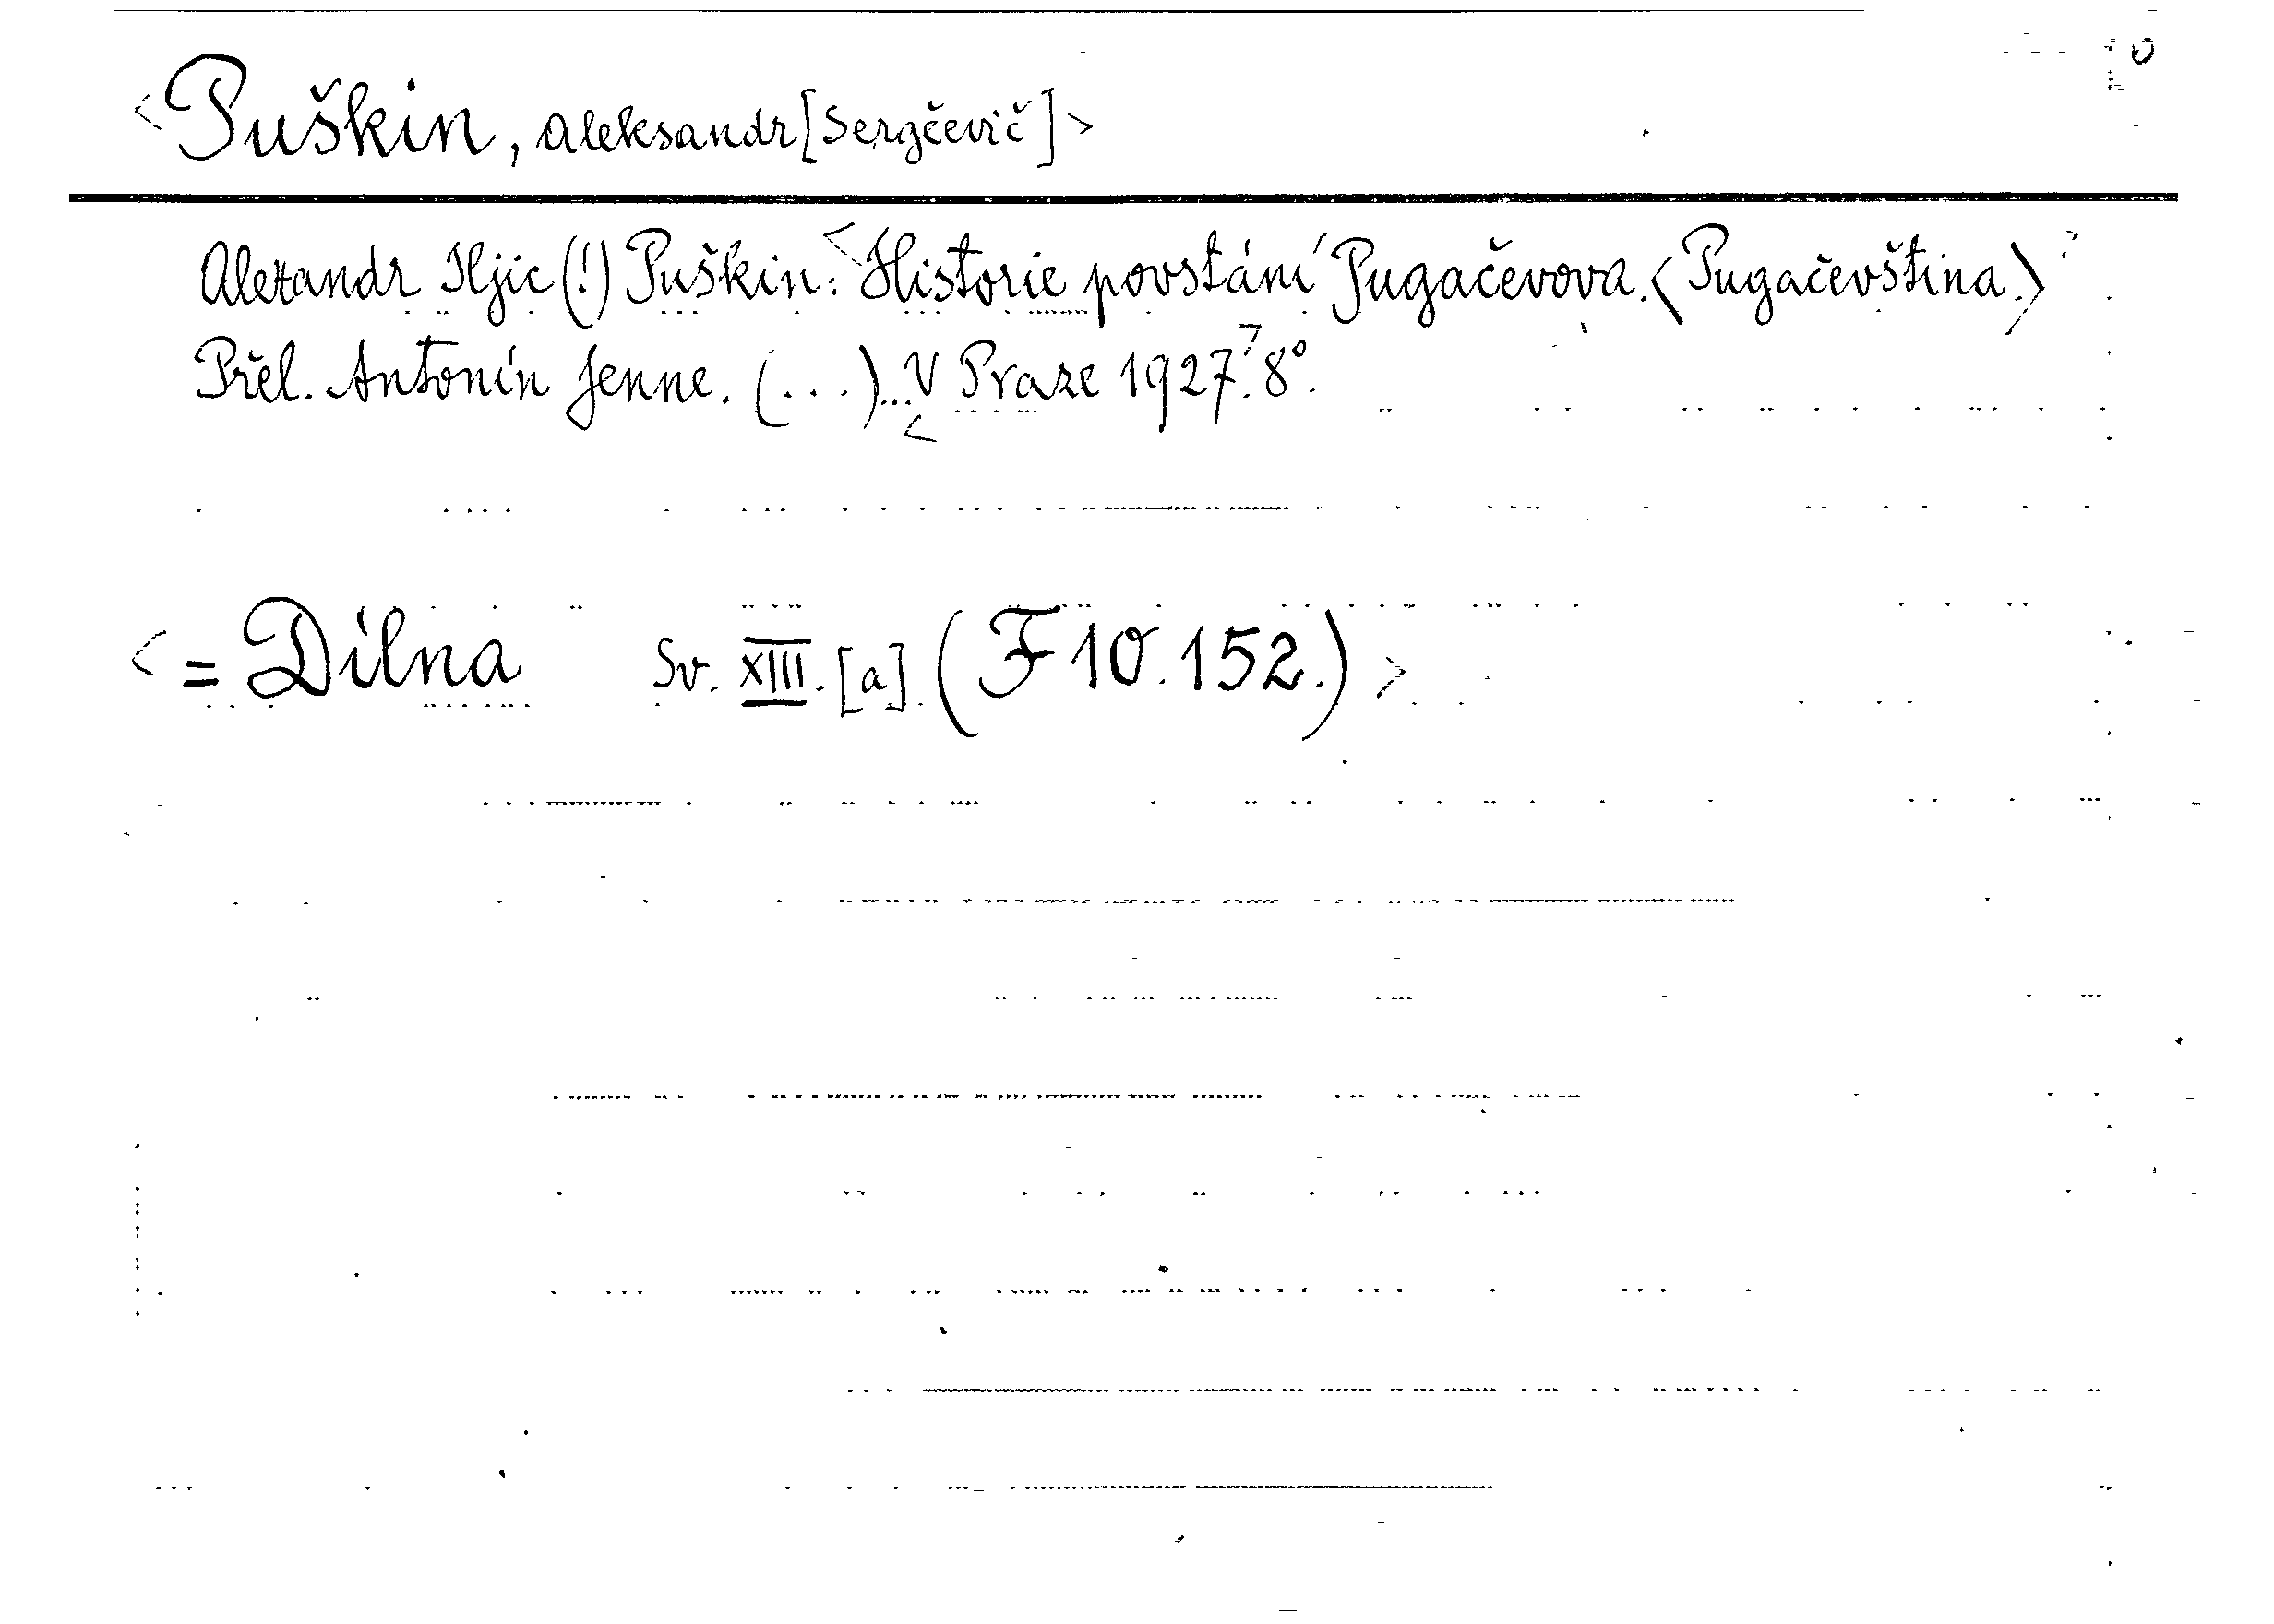 <Puškin, Aleksandr [Sergěevič]>
Alexandr Iljic (!) Puškin: <Historie povstání Pugačevova. (Pugačevština.)>
Přel. Antonín Jenne. (...)... <V Praze 1927.> 8°.
<= Dílna Sv. XIII. [a]. (F 10.152.)>